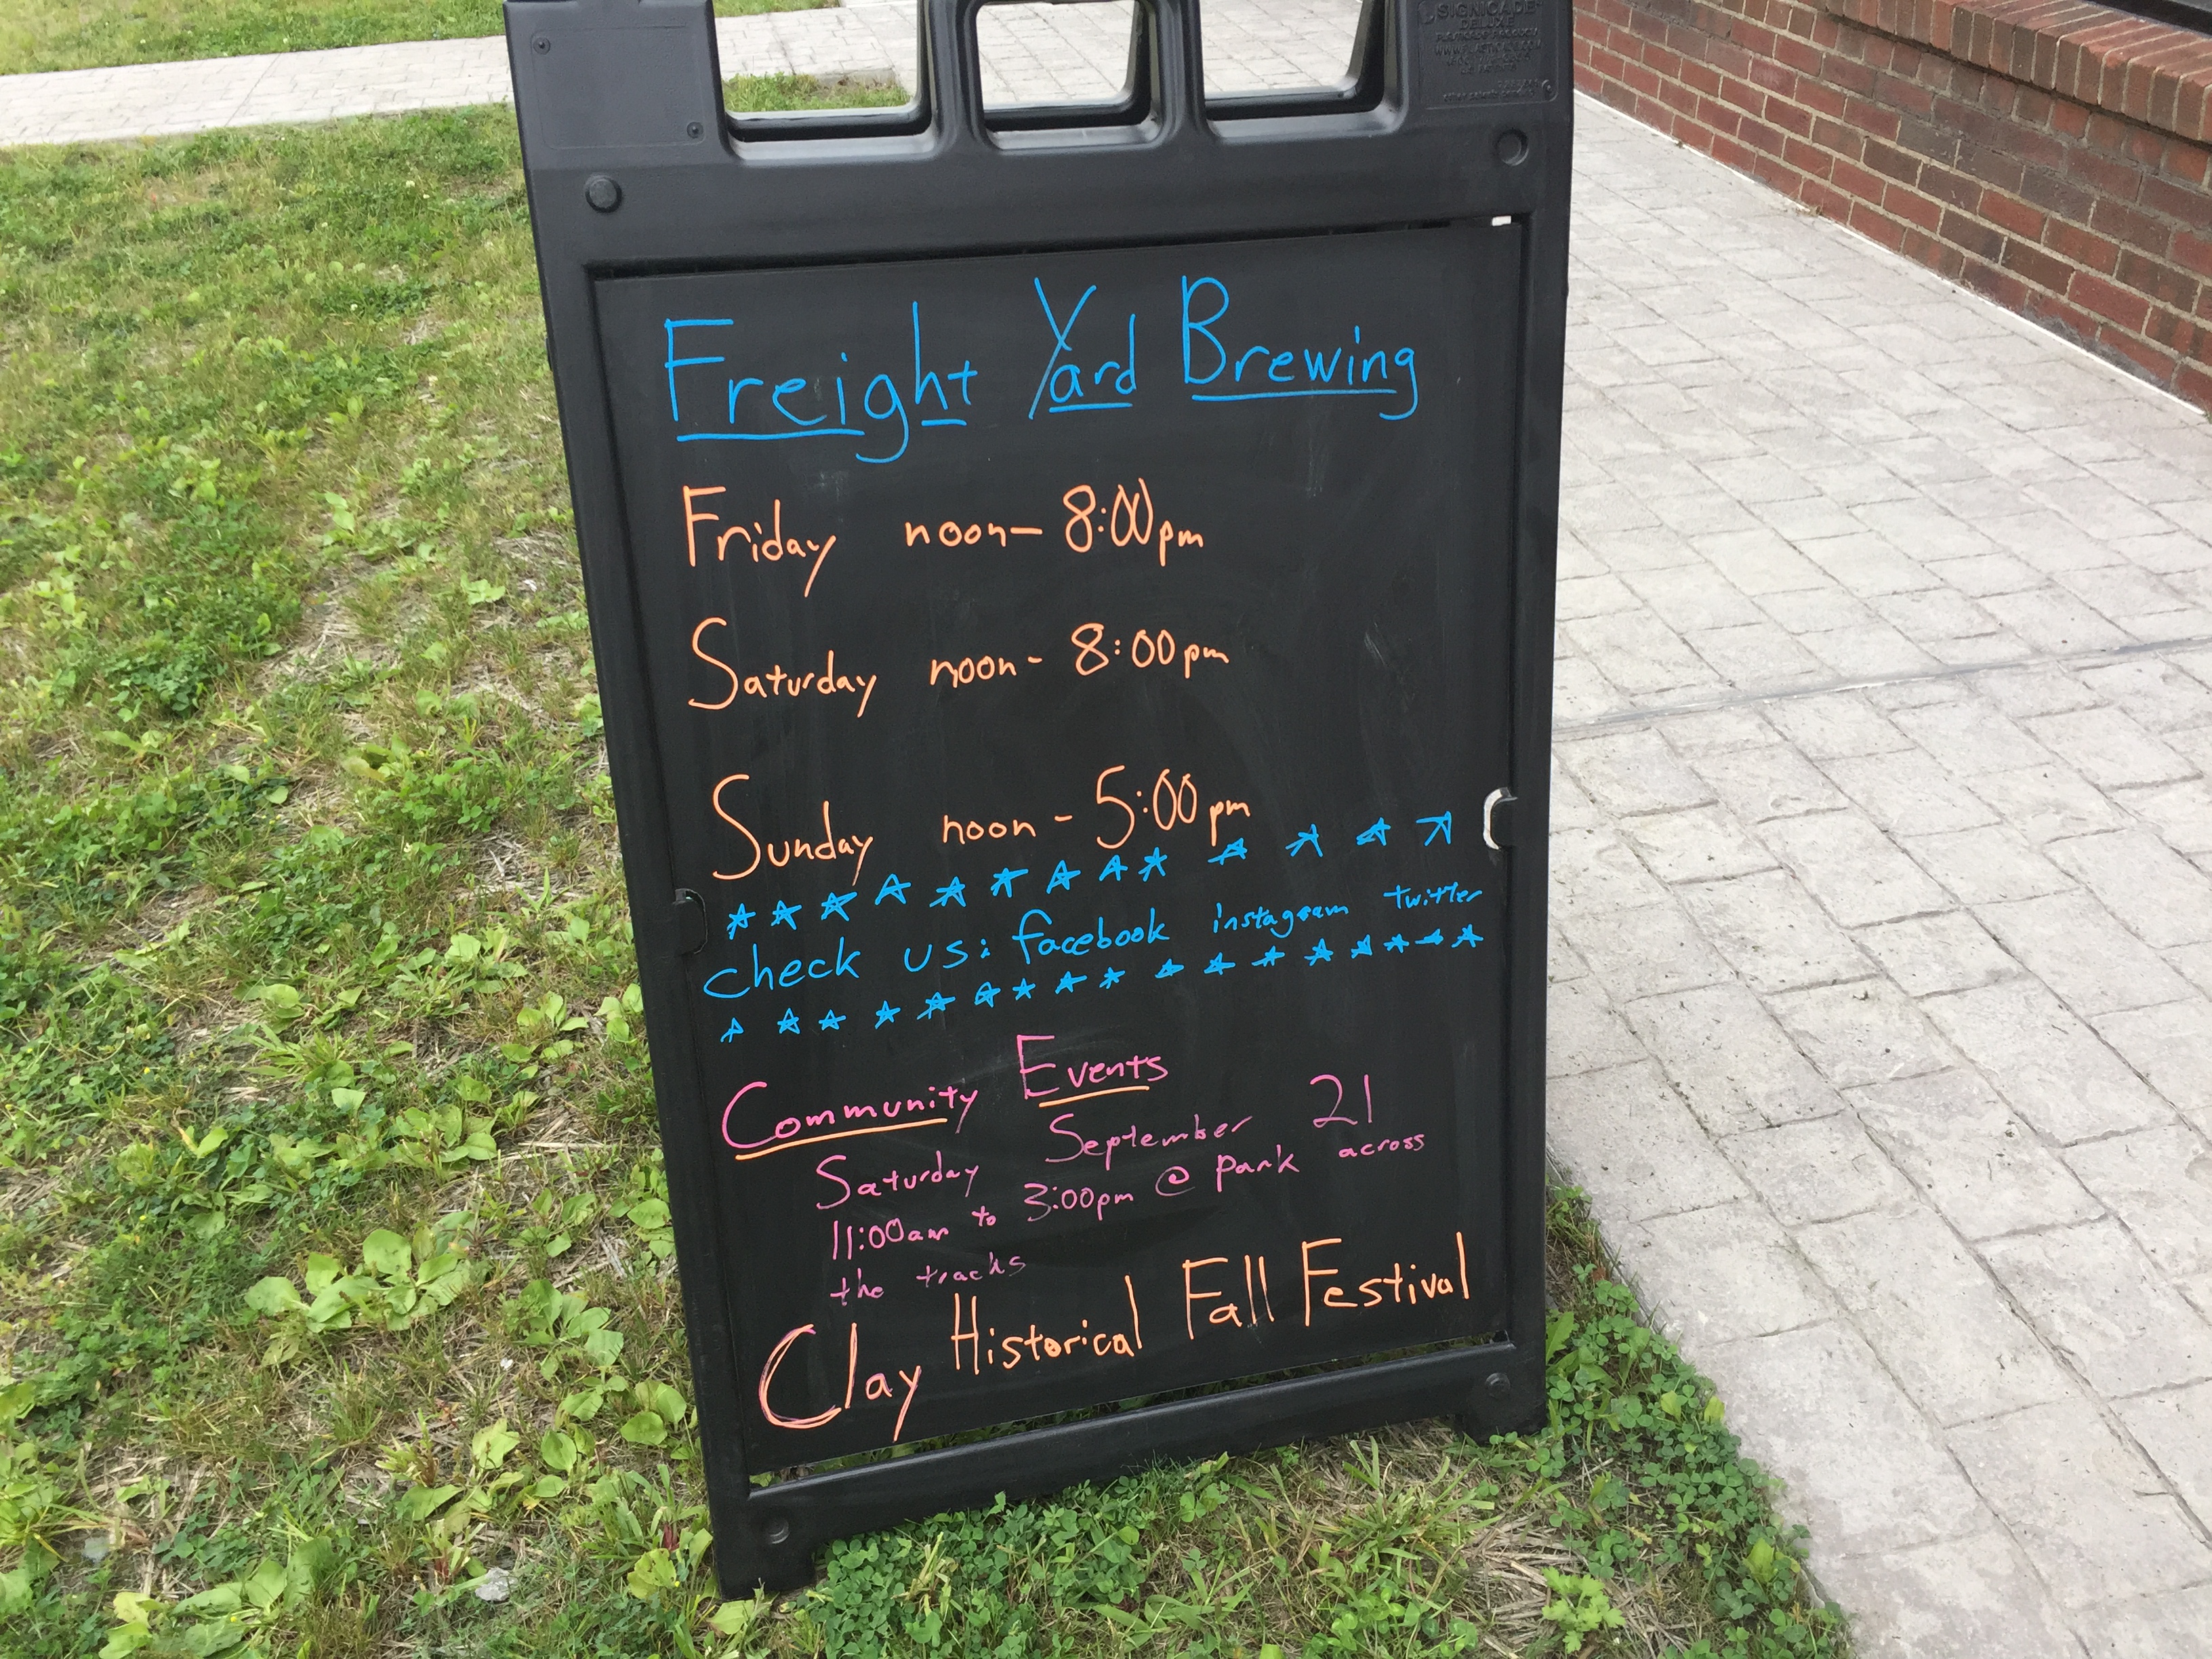 SIGNICADE
DELUXE
Freight Yard Brewing
Friday noon- 8:00pm
Saturday noon- 8:00pm
Sunday noon- 5:00pm
check us: facebook instagram twitter
Community Events
Saturday September 21
11:00am to 3:00pm @ park across
the tracks
Clay Historical Fall Festival